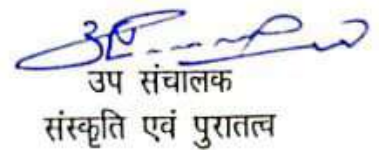 उप संचालक
संस्कृति एवं पुरातत्व